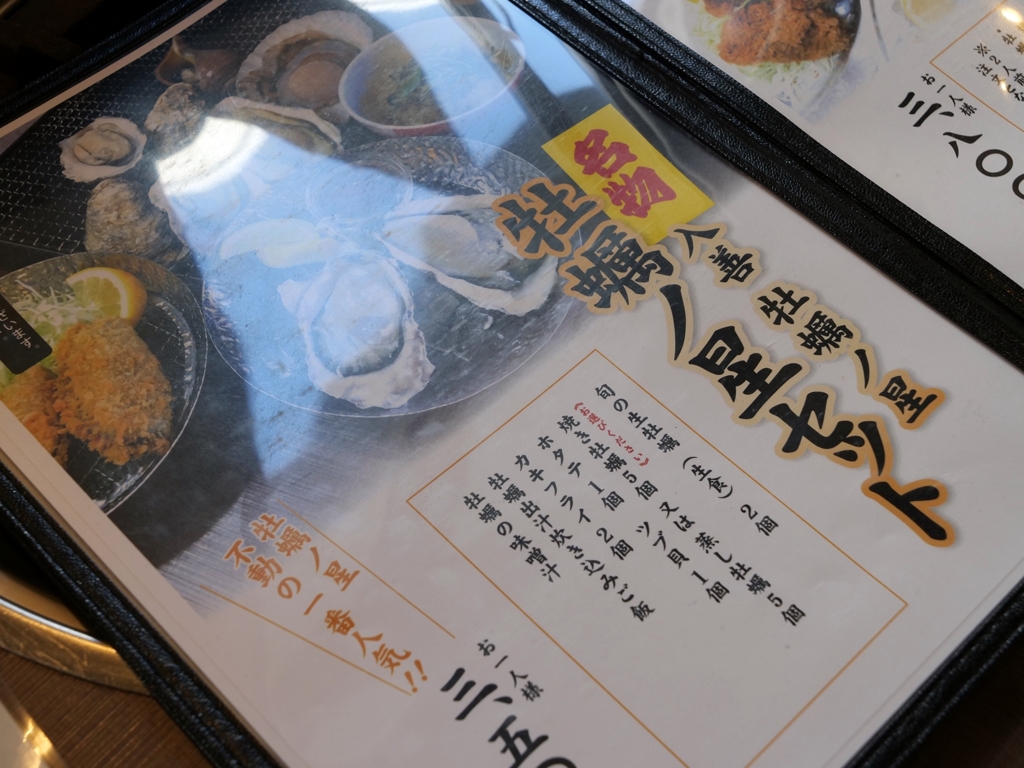 お一人様
三、八〇
名物
八善 牡蠣ノ星
牡蠣ノ星セット
旬の生牡蠣(生食)2個
(お選びください)
焼き牡蠣5個 又は蒸し牡蠣5個
ホタテ1個 ツブ貝1個
カキフライ2個
牡蠣出汁炊き込みご飯
牡蠣の味噌汁
牡蠣ノ星
不動の一番人気!!
お一人様
三、五